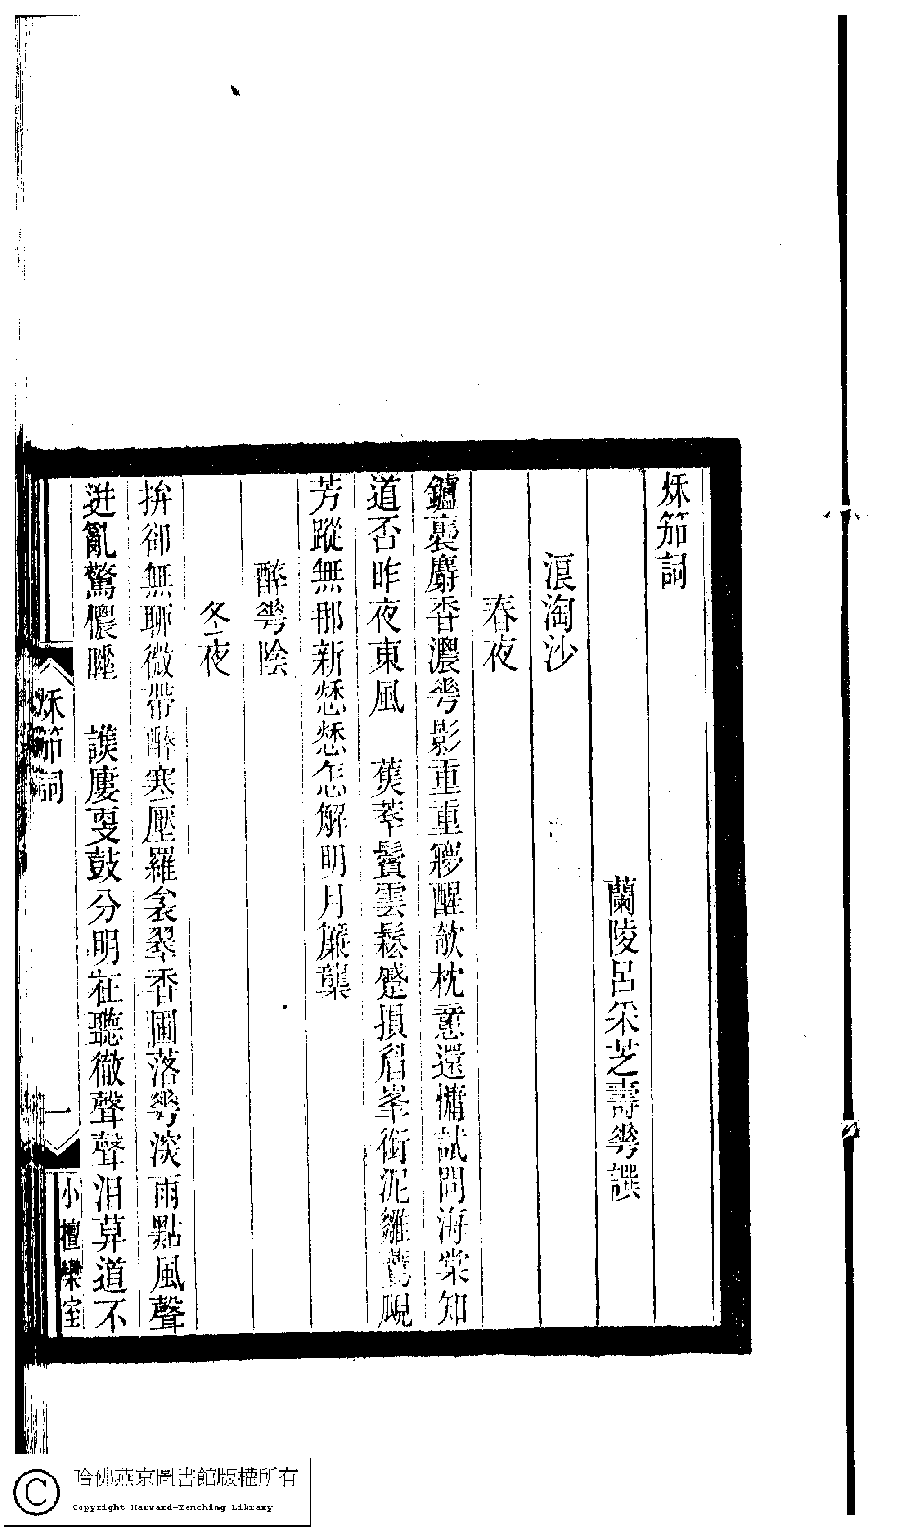 秌笳詞
蘭陵呂采芝壽蕚譔
浪淘沙
春夜
鑪裊麝香濃蕚影重重夢醒欹枕意還慵試問海棠知
道否昨夜東風　蕉萃鬢雲鬆蹙損眉峯銜泥雛燕覷
芳蹤無那新愁愁怎解明月簾櫳
醉蕚陰
冬夜
拚卻無聊微帶醉寒壓羅衾翠香圃落蕚深雨點風聲
迸亂驚儂睡　譙廔更鼓分明在聽徹聲聲淚莫道不
秌笳詞
一
小檀欒室
哈佛燕京圖書館版權所有
Copyright Harvard-Yenching Library